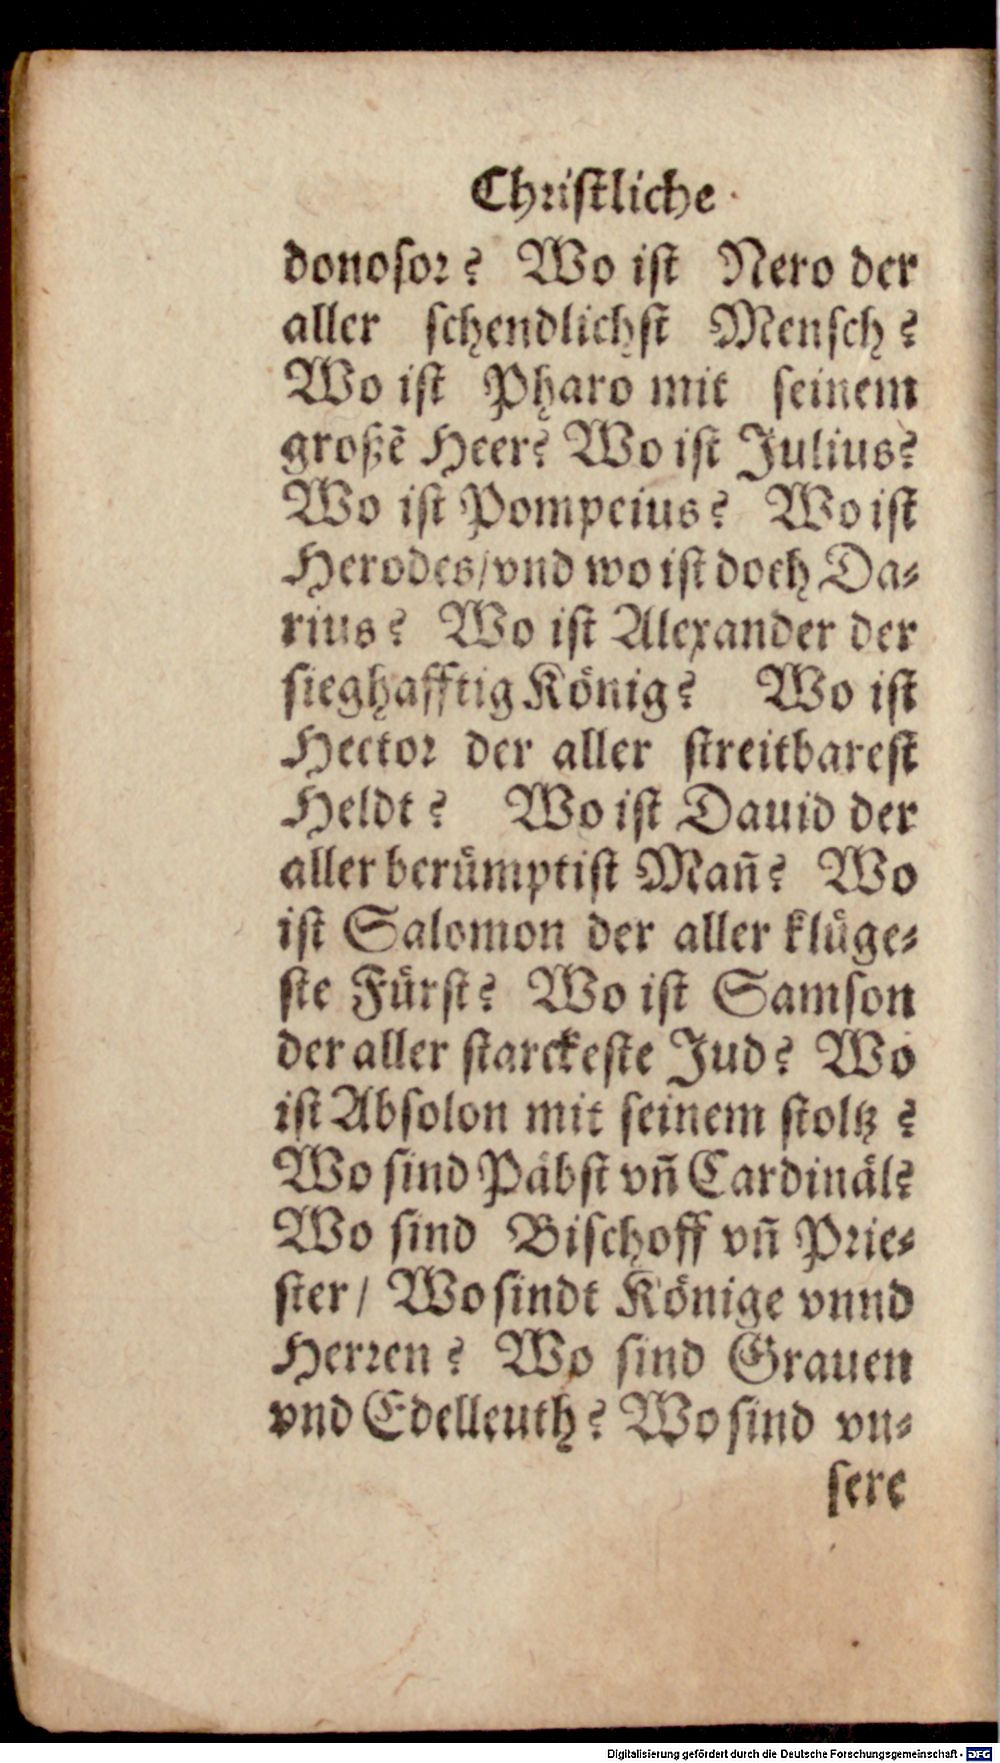 Christliche
donosor? Wo ist Nero der
aller schendlichst Mensch?
Wo ist Pharo mit seinem
großẽ Heer? Wo ist Julius?
Wo ist Pompeius? Wo ist
Herodes/ vnd wo ist doch Da-
rius? Wo ist Alexander der
sieghafftig König? Wo ist
Hector der aller streitbarest
Heldt? Wo ist Dauid der
aller berümptist Mañ? Wo
ist Salomon der aller klüge-
ste Fürst? Wo ist Samson
der aller starckeste Jud? Wo
ist Absolon mit seinem stoltz?
Wo sind Päbst vñ Cardinäl?
Wo sind Bischoff vñ Prie-
ster/ Wo sindt Könige vnnd
Herren? Wo sind Grauen
vnd Edelleuth? Wo sind vn-
sere
Digitalisierung gefördert durch die Deutsche Forschungsgemeinschaft - DFG